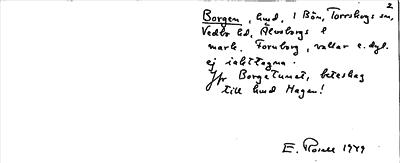 2
Borgen, hmd, i Bön, Torrskogs sn,
Vedbo hd, Älvsborgs l
mark. Fornborg, vallar e. dyl.
ej iakttagna.
Jfr Borgetunet, beteshag
till hmd Hagen!
E. Rosell 1949